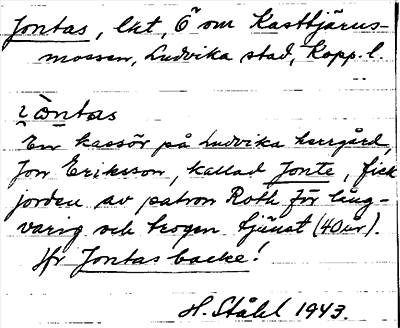 Jontas, lht, Ö om Kasttjärns-
mossen, Ludvika stad, Kopp. l.
En kassör på Ludvika herrgård,
Jon Eriksson, kallad Jonte, fick
jorden av patron Roth för lång-
varig och trogen tjänst (40 år).
Jfr Jontas backe!
H. Ståhl 1943.